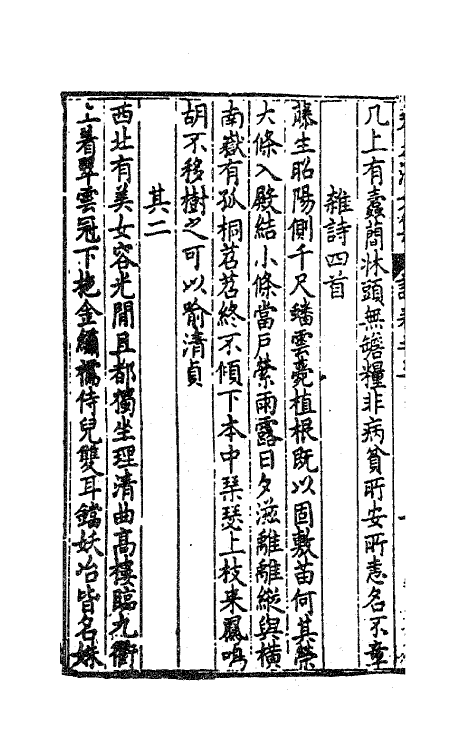 几上有蠹簡牀頭無贍糧非病貧所安所恚名不章
雜詩四首
藤生昭陽側千尺蟠雲甍植根既以固敷苗何其榮
大條入殿結小條當戶縈雨露日夕滋離離縱與橫
南嶽有孤桐苕苕終不傾下本中琹瑟上枝来鳳鳴
胡不移樹之可以喻清貞
其二
西北有美女容光閒且都獨坐理清曲高樓臨九衢
上着翠雲冠下拖金縷襦侍兒雙耳鐺妖冶皆名姝